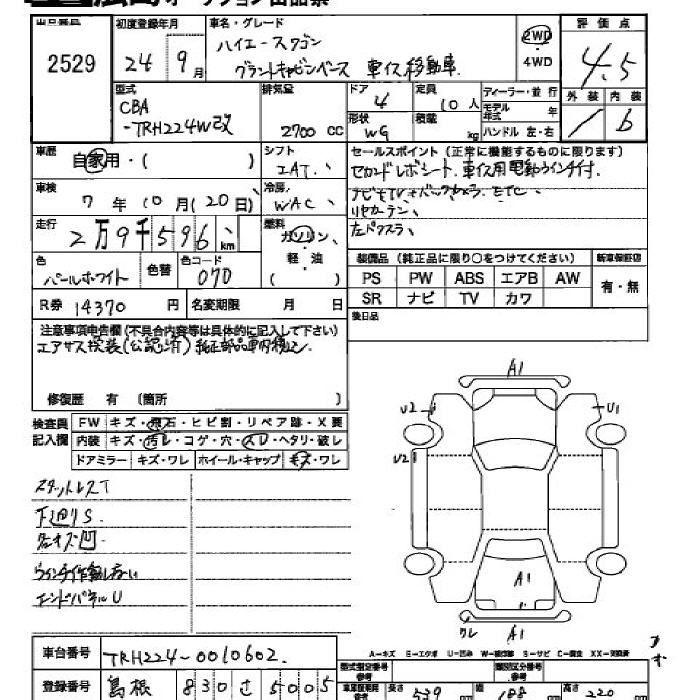 2529
初度登録年月
24年 9月
車名・グレード
ハイエースワゴン
グランドキャビンベース 車イス移動車
2WD
4WD
評価点
4.5
外装 内装
/ b
型式
CBA
-TRH224W改
排気量
2700 CC
ドア 4
定員 10人
形状 WG
積載 kg
ディーラー・並行
モデル年式 年
ハンドル 左・右
車歴
自家用・( )
シフト
IAT.
セールスポイント(正常に機能するものに限ります)
セカンドレボシート. 車イス用電動ウインチ付.
ナビモTV+バックカメラ ETC、
リヤカーテン、
左Pクスラ、
車検
7年10月(20日)
冷房
WAC
走行
2万9千596 km
燃料
ガソリン
軽・油
( )
色
パールホワイト
色替
色コード
070
装備品(純正品に限り○をつけてください)
新車保証書
PS PW ABS エアB AW
SR ナビ TV カワ
有・無
R券 14370円
名変期限 月 日
後日品
注意事項申告欄(不具合内容等は具体的に記入して下さい)
エアサス換装(公認済) 純正部品車内積込
修復歴 有 (箇所 )
検査員記入欄
FW キズ・飛石・ヒビ割・リペア跡・X要
内装 キズ・汚レ・コゲ・穴・スレ・ヘタリ・破レ
ドアミラー キズ・ワレ ホイール・キャップ キズ・ワレ
スタットレスT
下廻りS
各キズ凹
ウインチ作動しない
エンドパネルU
A1
U2
U1
U2
A1
ワレ
A1
A-キズ E-エクボ U-凹み W-補修跡 S-サビ C-腐食 XX-交換済
車台番号 TRH224-0010602.
登録番号 島根 830 さ 5005
型式指定番号
類別区分番号
長さ 539 cm
幅 188 cm
高さ 220 cm